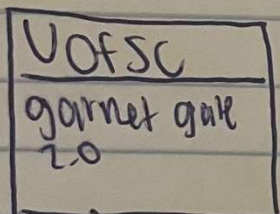 UofSC
garnet gate
2.0